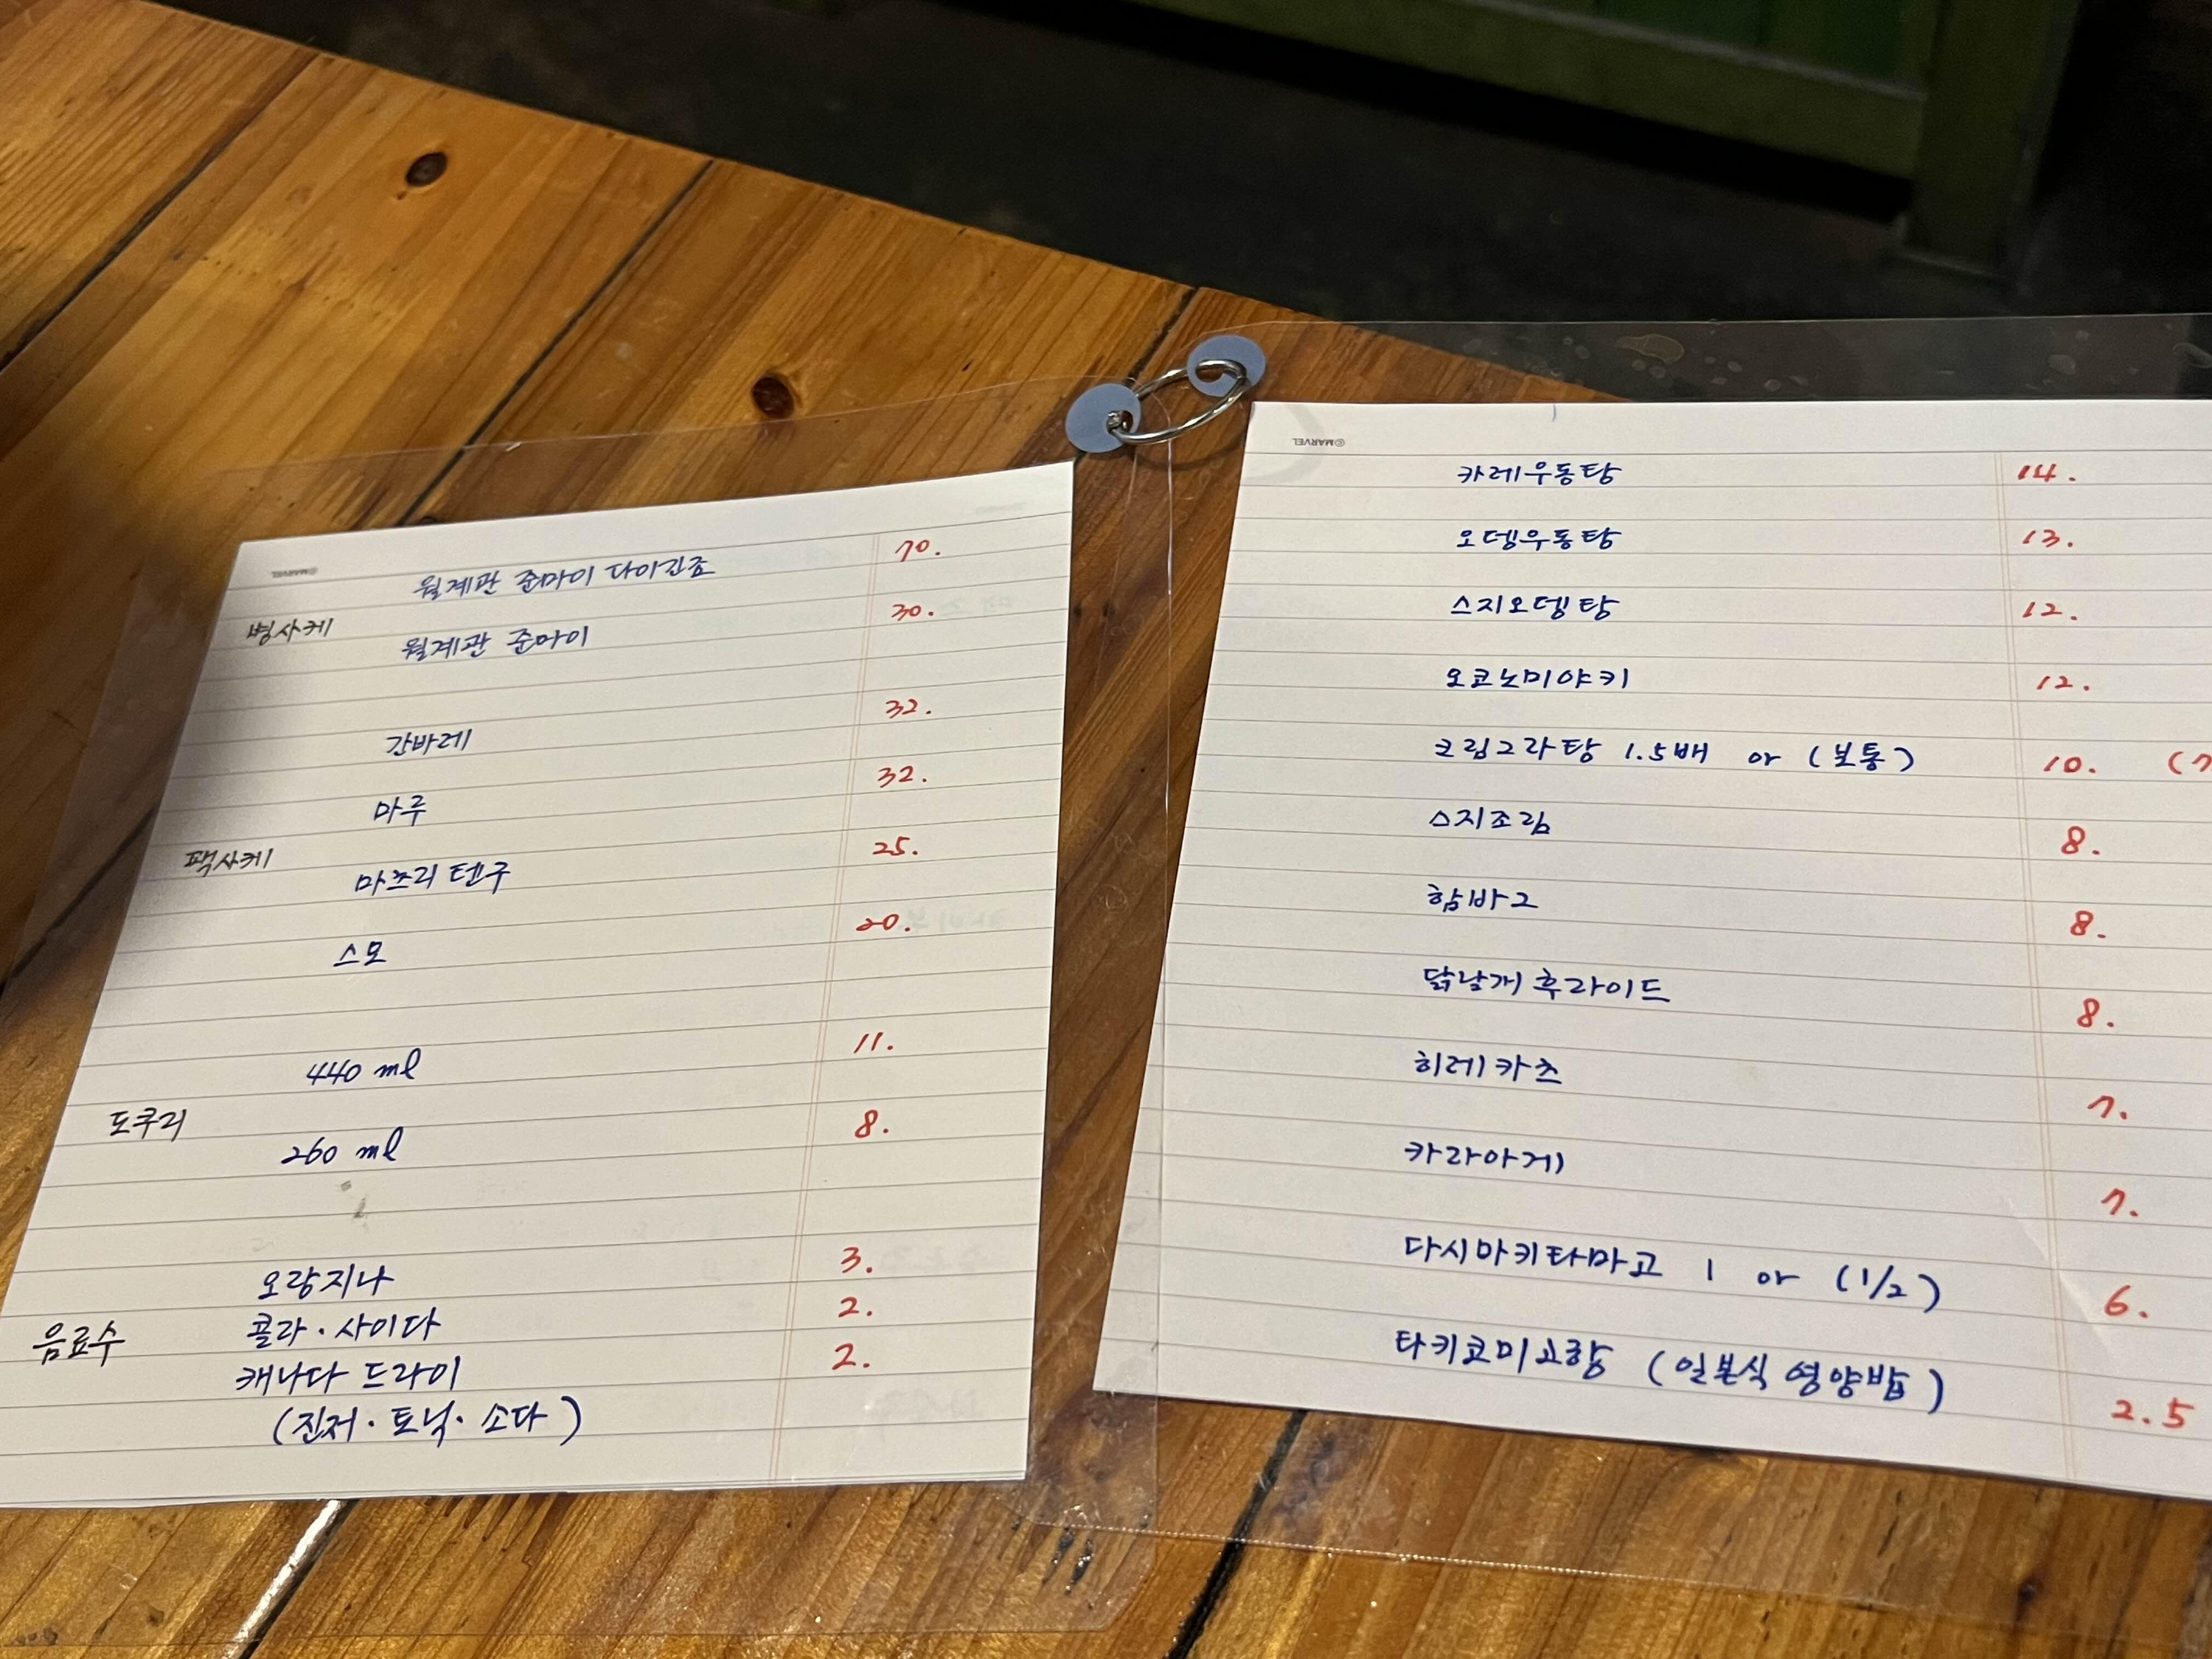 ©MARVEL
월계관 준마이 다이긴죠 70.
병사케
월계관 준마이 30.
간바레 32.
마루 32.
팩사케
마츠리 텐구 25.
스모 20.
440 ml 11.
도쿠리
260 ml 8.
오랑지나 3.
콜라·사이다 2.
음료수
캐나다 드라이 2.
(진저·토닉·소다)
©MARVEL
카레우동탕 14.
오뎅우동탕 13.
스지오뎅탕 12.
오코노미야키 12.
크림그라탕 1.5배 or (보통) 10. (7
스지조림 8.
함바그 8.
닭날개 후라이드 8.
히레카츠 7.
카라아게 7.
다시마키타마고 1 or (1/2) 6.
타키코미고항 (일본식 영양밥) 2.5